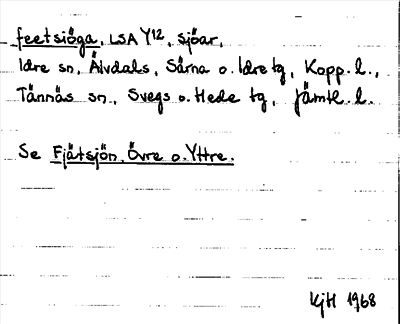 feetsiöga, LSA Y12, sjöar,
Idre sn, Älvdals, Särna o. Idre tg, Kopp. l.,
Tännäs sn., Svegs o. Hede tg, Jämtl. l.
Se Fjätsjön, Övre o. Yttre.
KjH 1968